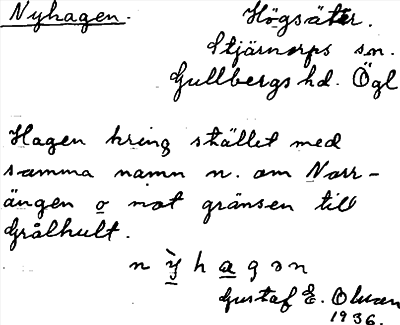 Nyhagen.
Högsäter.
Stjärnorps sn.
Gullbergs hd. Ögl
Hagen kring stället med
samma namn n. om Norr-
ängen o mot gränsen till
Grålhult.
n ỳ h a g ə n
Gustaf E. Olsson
1936.